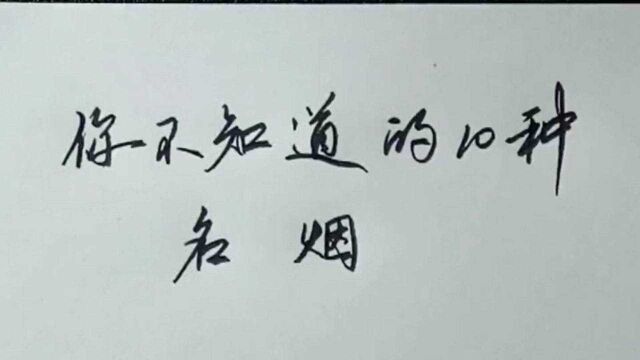 你不知道的10种
名烟